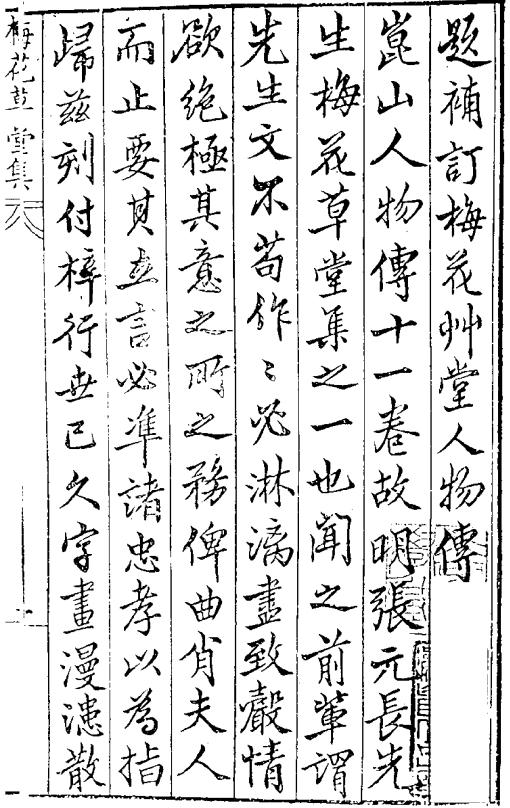 題補訂梅花艸堂人物傳
崑山人物傳十一卷故明張元長先
生梅花草堂集之一也聞之前輩謂
先生文不苟作〻必淋漓盡致聲情
欲絕極其意之所之務俾曲肖夫人
而止要其立言必準諸忠孝以為指
歸茲刻付梓行世已久字畫漫漶散
梅花草堂集